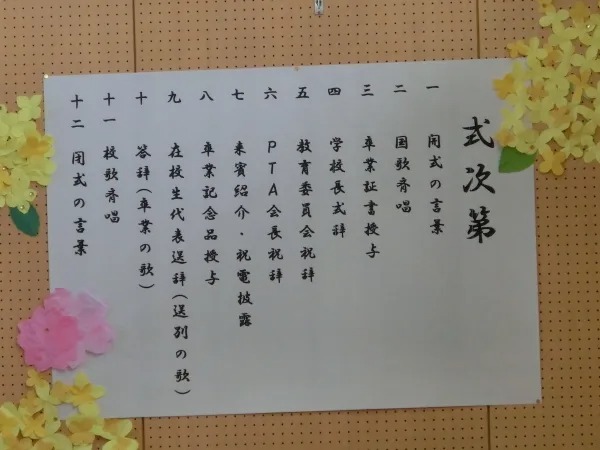 式次第
一 開式の言葉
二 国歌斉唱
三 卒業証書授与
四 学校長式辞
五 教育委員会祝辞
六 PTA会長祝辞
七 来賓紹介・祝電披露
八 卒業記念品授与
九 在校生代表送辞(送別の歌)
十 答辞(卒業の歌)
十一 校歌斉唱
十二 閉式の言葉